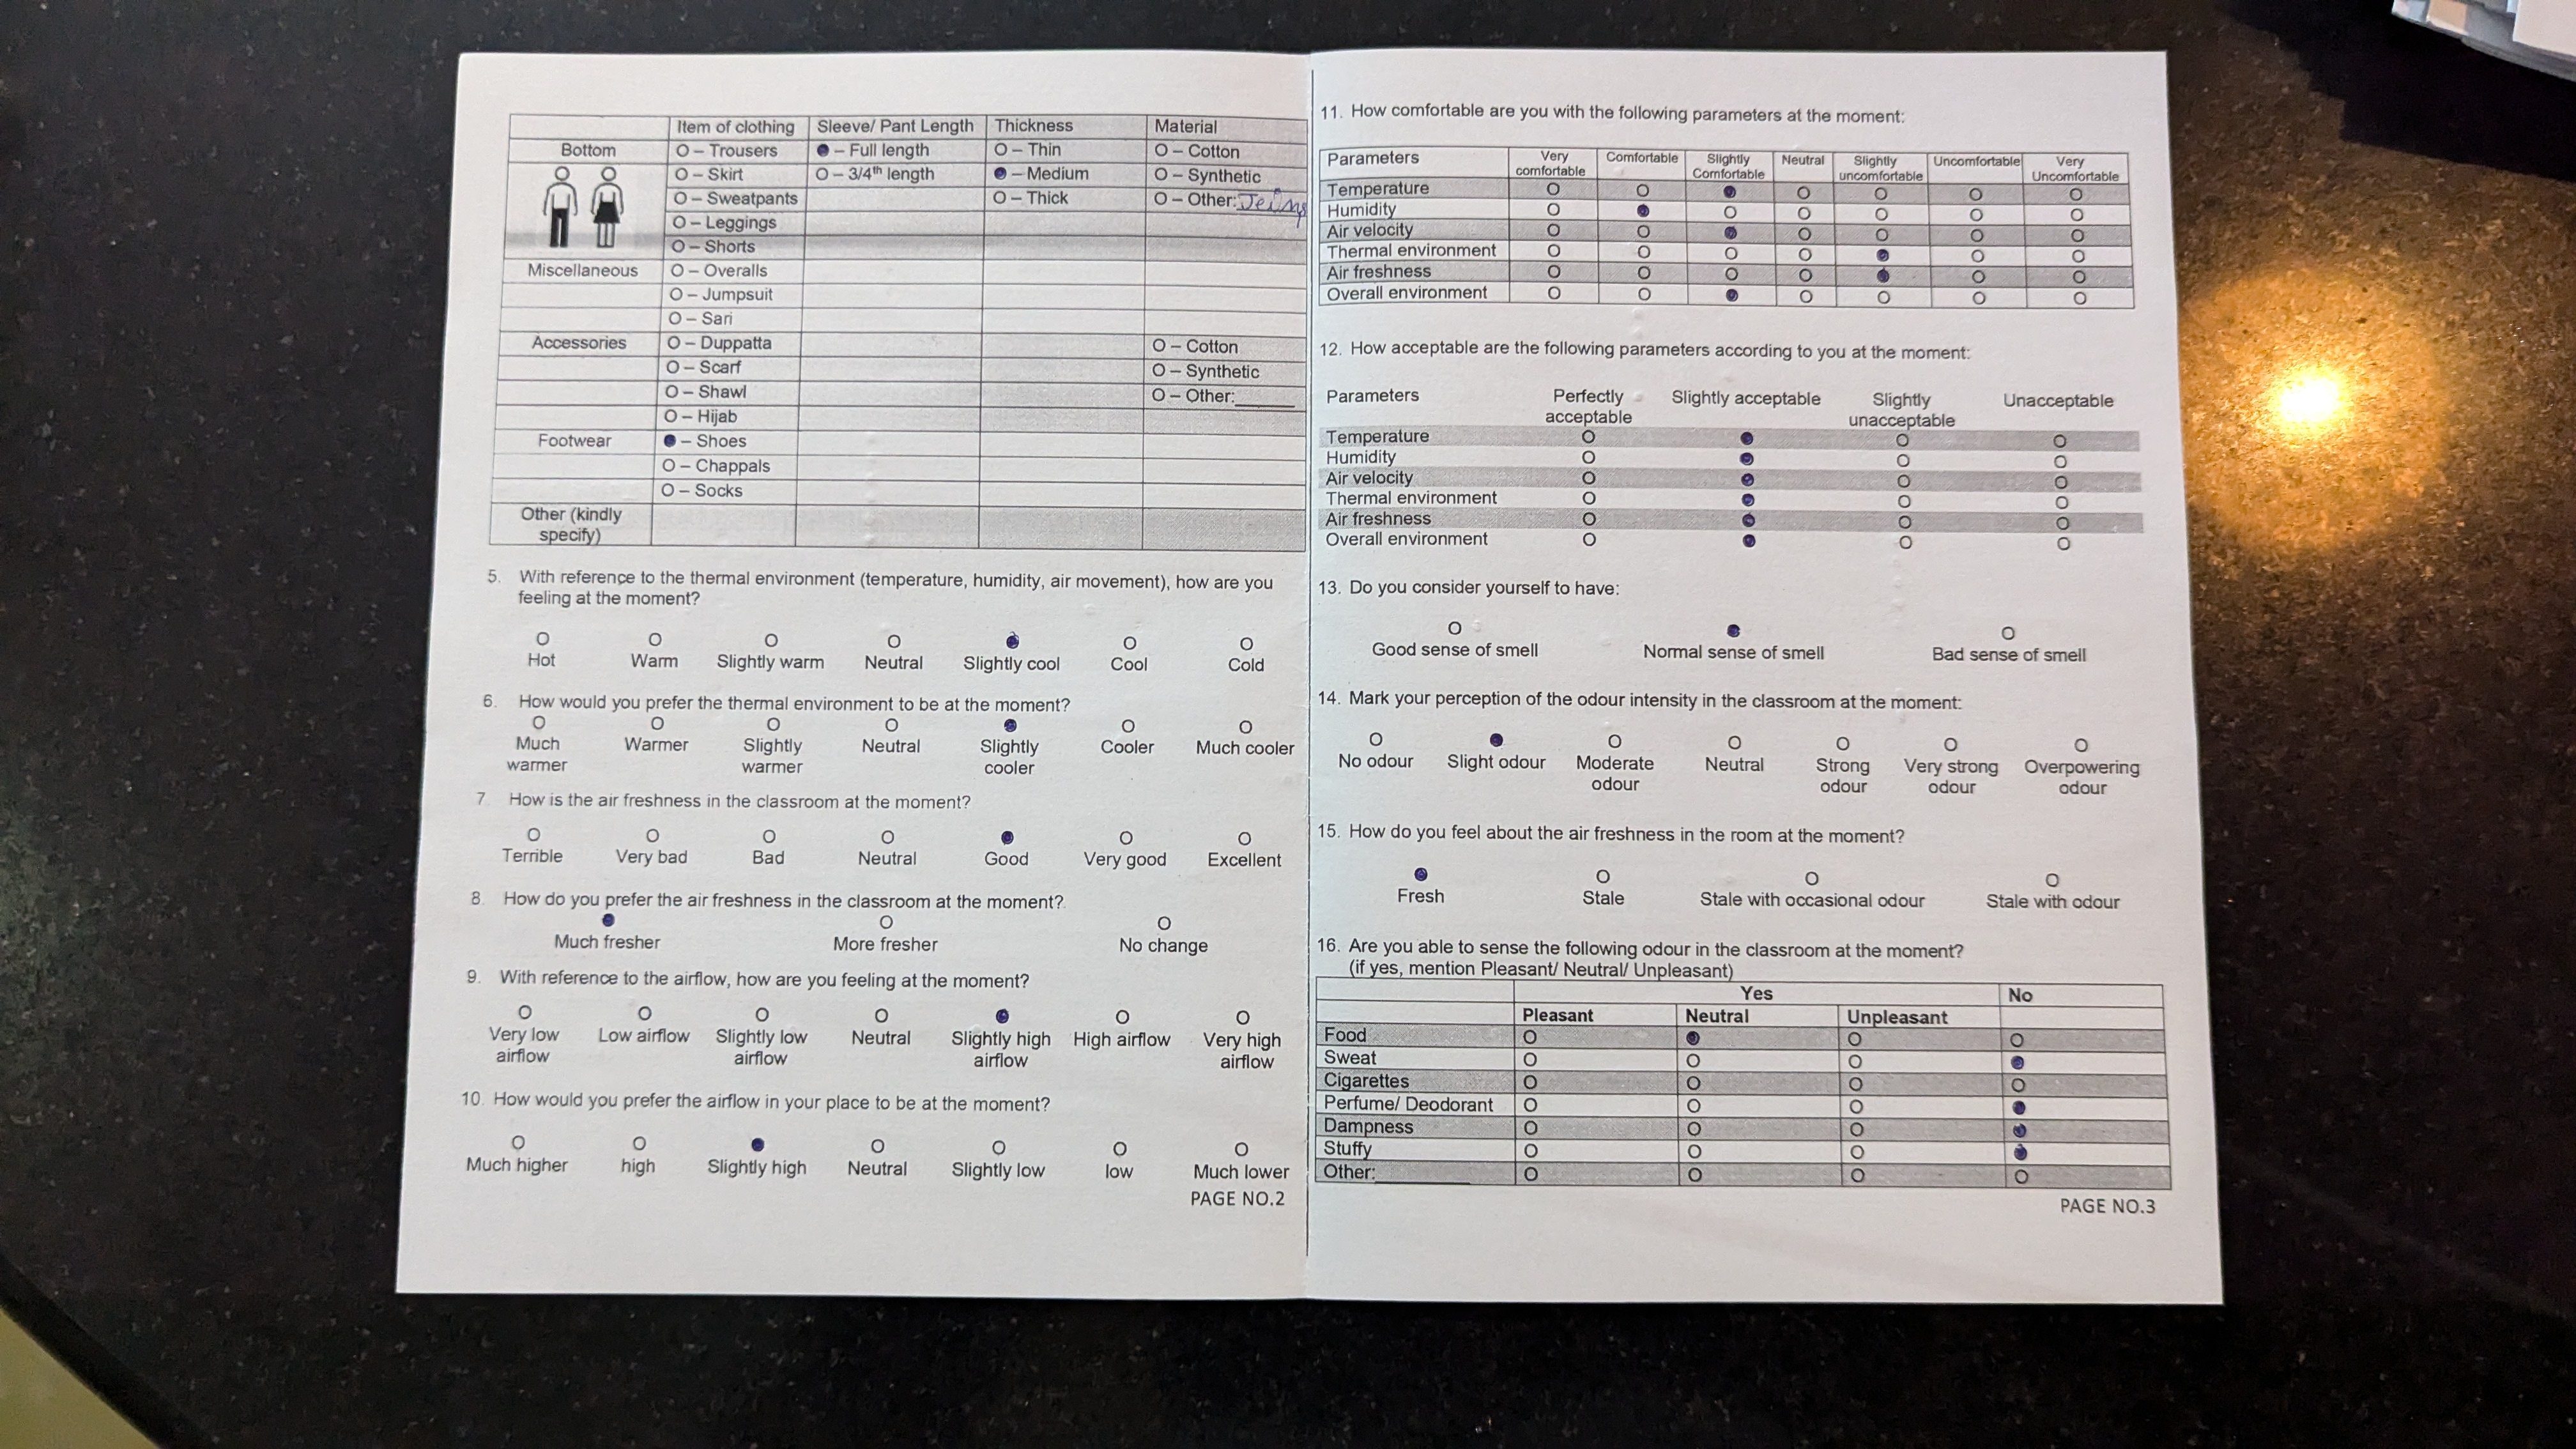 Item of clothing Sleeve/ Pant Length Thickness Material
Bottom O – Trousers ● – Full length O – Thin O – Cotton
O – Skirt O – 3/4th length ● – Medium O – Synthetic
O – Sweatpants O – Thick O – Other:
O – Leggings
O – Shorts
Miscellaneous O – Overalls
O – Jumpsuit
O – Sari
Accessories O – Duppatta O – Cotton
O – Scarf O – Synthetic
O – Shawl O – Other:______
O – Hijab
Footwear ● – Shoes
O – Chappals
O – Socks
Other (kindly
specify)
5. With reference to the thermal environment (temperature, humidity, air movement), how are you
feeling at the moment?
O O O O ● O O
Hot Warm Slightly warm Neutral Slightly cool Cool Cold
6. How would you prefer the thermal environment to be at the moment?
O O O O ● O O
Much Warmer Slightly Neutral Slightly Cooler Much cooler
warmer warmer cooler
7. How is the air freshness in the classroom at the moment?
O O O O ● O O
Terrible Very bad Bad Neutral Good Very good Excellent
8. How do you prefer the air freshness in the classroom at the moment?
● O O
Much fresher More fresher No change
9. With reference to the airflow, how are you feeling at the moment?
O O O O ● O O
Very low Low airflow Slightly low Neutral Slightly high High airflow Very high
airflow airflow airflow airflow
10. How would you prefer the airflow in your place to be at the moment?
O O ● O O O O
Much higher high Slightly high Neutral Slightly low low Much lower
PAGE NO.2
11. How comfortable are you with the following parameters at the moment:
Parameters Very Comfortable Slightly Neutral Slightly Uncomfortable Very
comfortable Comfortable uncomfortable Uncomfortable
Temperature O O ● O O O O
Humidity O ● O O O O O
Air velocity O O ● O O O O
Thermal environment O O O O ● O O
Air freshness O O O O ● O O
Overall environment O O ● O O O O
12. How acceptable are the following parameters according to you at the moment:
Parameters Perfectly Slightly acceptable Slightly Unacceptable
acceptable unacceptable
Temperature O ● O O
Humidity O ● O O
Air velocity O ● O O
Thermal environment O ● O O
Air freshness O ● O O
Overall environment O ● O O
13. Do you consider yourself to have:
O ● O
Good sense of smell Normal sense of smell Bad sense of smell
14. Mark your perception of the odour intensity in the classroom at the moment:
O ● O O O O O
No odour Slight odour Moderate Neutral Strong Very strong Overpowering
odour odour odour odour
15. How do you feel about the air freshness in the room at the moment?
● O O O
Fresh Stale Stale with occasional odour Stale with odour
16. Are you able to sense the following odour in the classroom at the moment?
(if yes, mention Pleasant/ Neutral/ Unpleasant)
Yes No
Pleasant Neutral Unpleasant
Food O ● O O
Sweat O O O ●
Cigarettes O O O O
Perfume/ Deodorant O O O ●
Dampness O O O ●
Stuffy O O O ●
Other:__________ O O O O
PAGE NO.3